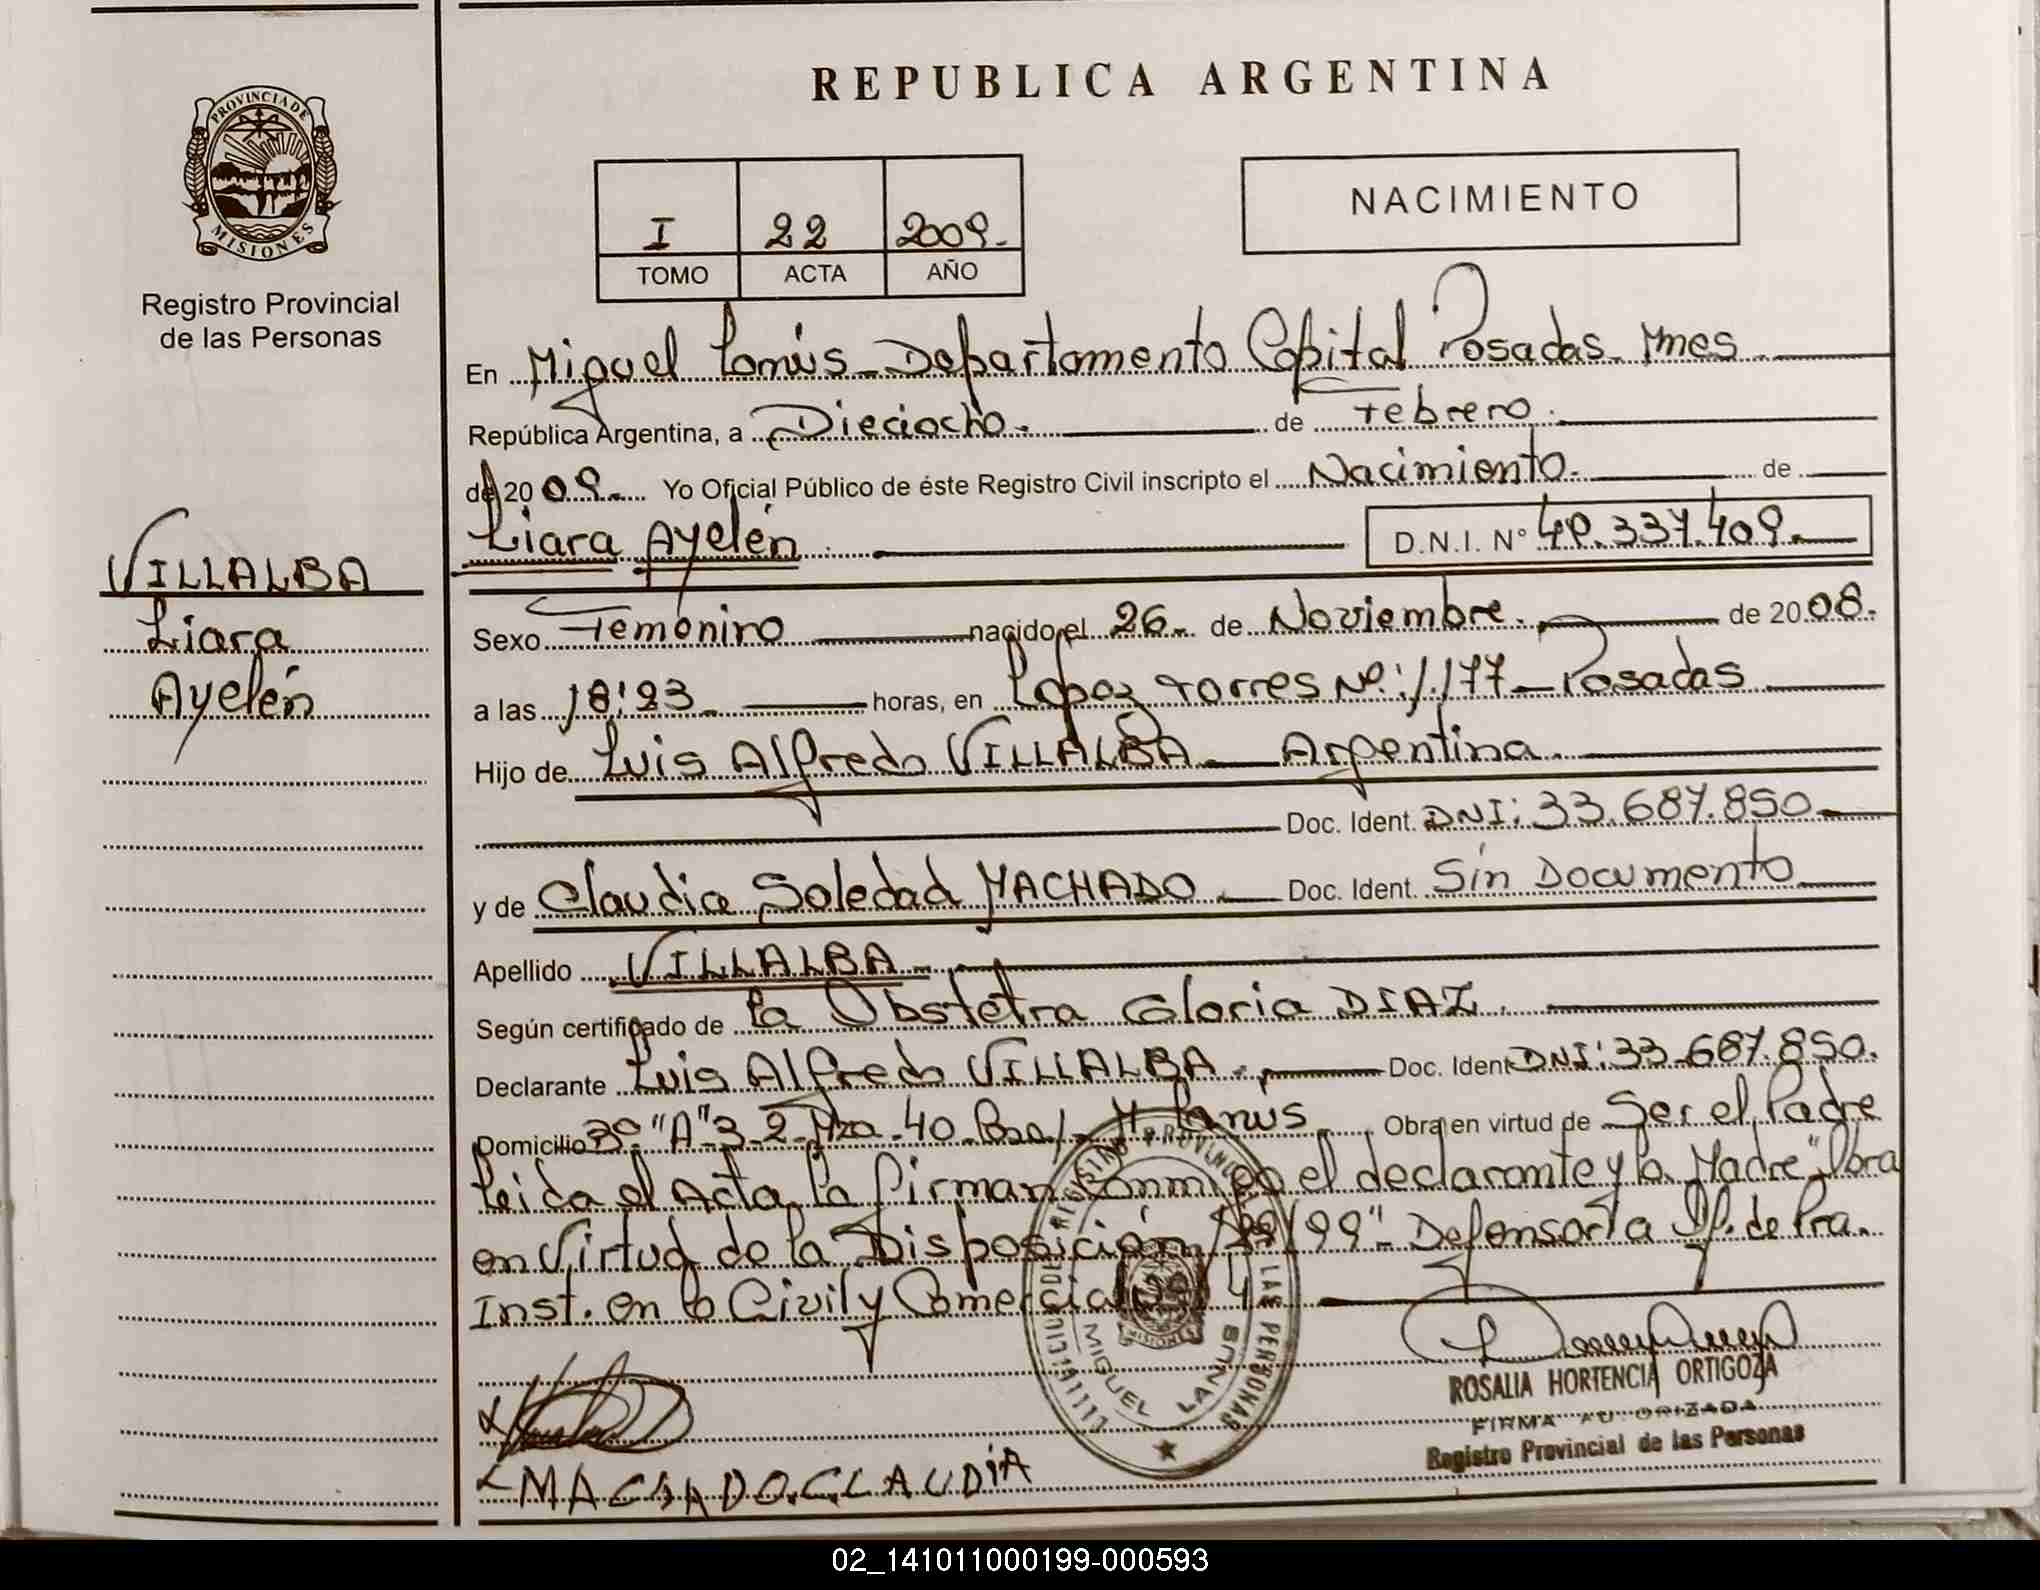 REPUBLICA ARGENTINA
PROVINCIA DE
MISIONES
Registro Provincial
de las Personas
I 22 2009.
TOMO ACTA AÑO
NACIMIENTO
En Miguel Lanús - Departamento Capital Posadas Mnes
República Argentina, a Dieciocho. de Febrero.
de 20 09. Yo Oficial Público de éste Registro Civil inscripto el Nacimiento. de
Liara Ayelén. D.N.I. Nº 49.337.409.
VILLALBA
Liara
Ayelén
Sexo Femenino nacido el 26 de Noviembre. de 20 08.
a las 18:23 horas, en López Torres Nº: 1.177 - Posadas
Hijo de Luis Alfredo VILLALBA. Argentina.
Doc. Ident. DNI: 33.687.850.
y de Claudia Soledad MACHADO. Doc. Ident. Sin Documento
Apellido VILLALBA
Según certificado de la Obstetra Gloria DIAZ.
Declarante Luis Alfredo VILLALBA. Doc. Ident DNI: 33.687.850.
Domicilio "A" 3-2-Mza.40. M Lanús Obra en virtud de Ser el Padre
Leida el Acta, la firman el declarante y la Madre, "Obra
en Virtud de la Disposición /99" - Defensoría Of. de Pra.
Inst. en lo Civil y Comercial 4
MIGUEL LANUS
ROSALIA HORTENCIA ORTIGOZA
FIRMA AUTORIZADA
Registro Provincial de las Personas
MACHADO.CLAUDIA
02_141011000199-000593